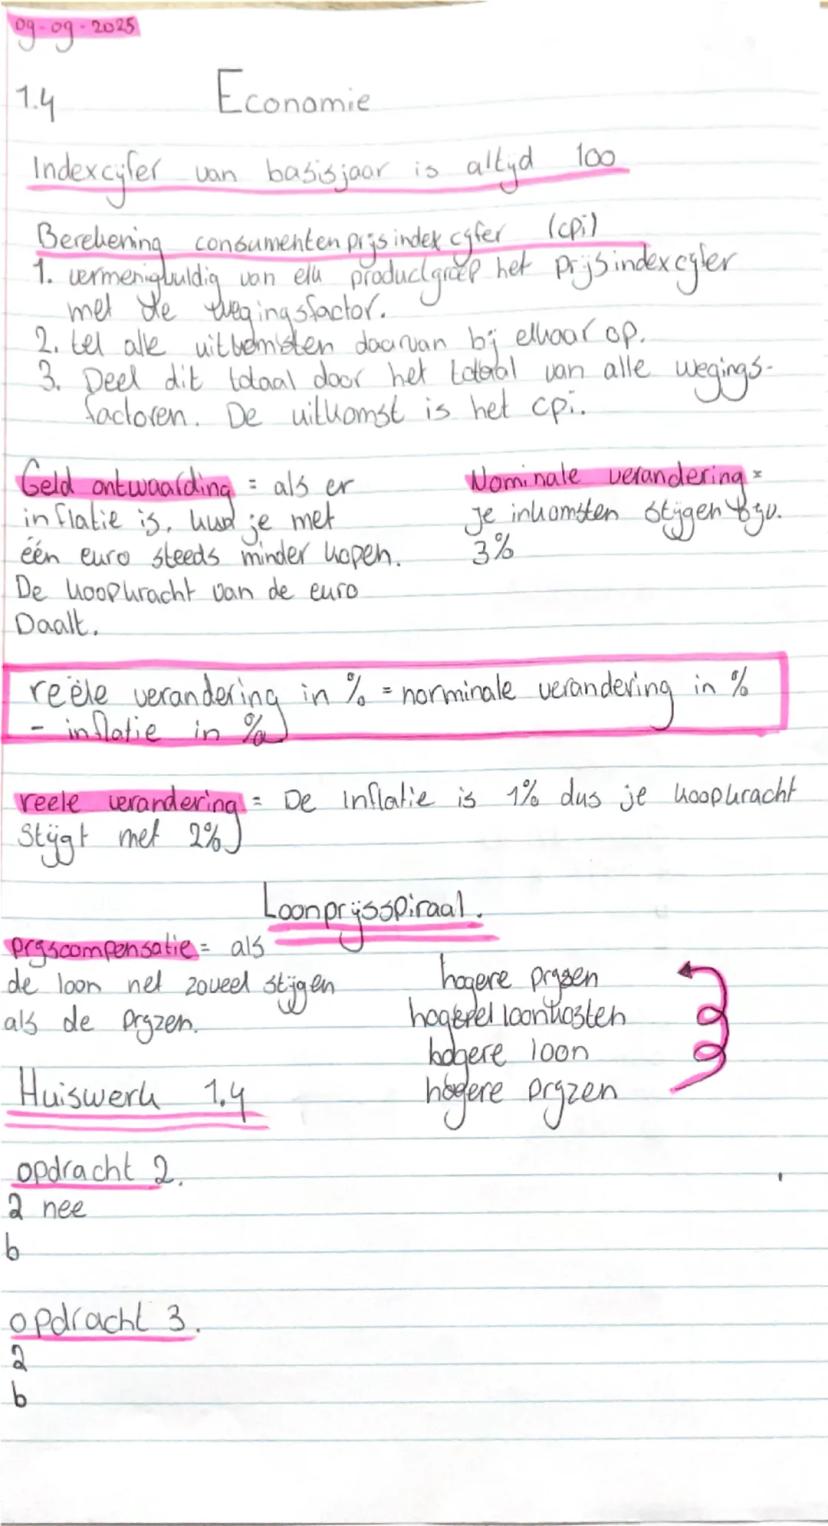 09-09-2025
1.4 Economie
Indexcijfer van basisjaar is altijd 100
Berekening consumentenprijsindexcijfer (cpi)
1. vermenigvuldig van elk productgroep het prijsindexcijfer
met de wegingsfactor.
2. tel alle uitkomsten daarvan bij elkaar op.
3. Deel dit totaal door het totaal van alle wegings-
factoren. De uitkomst is het cpi.
Geld ontwaarding = als er
inflatie is, kud je met
één euro steeds minder kopen.
De koopkracht van de euro
Daalt.
Nominale verandering =
je inkomsten stijgen bzv.
3%
reële verandering in % = norminale verandering in %
- inflatie in %
reele verandering = De inflatie is 1% dus je koopkracht
stijgt met 2%
Loonprijsspiraal.
prijscompensatie = als
de loon net zoveel stijgen
als de prijzen.
hogere prijsen
hogere loonkosten
hogere loon
hogere prijzen
Huiswerk 1.4
opdracht 2.
a nee
b
opdracht 3.
a
b